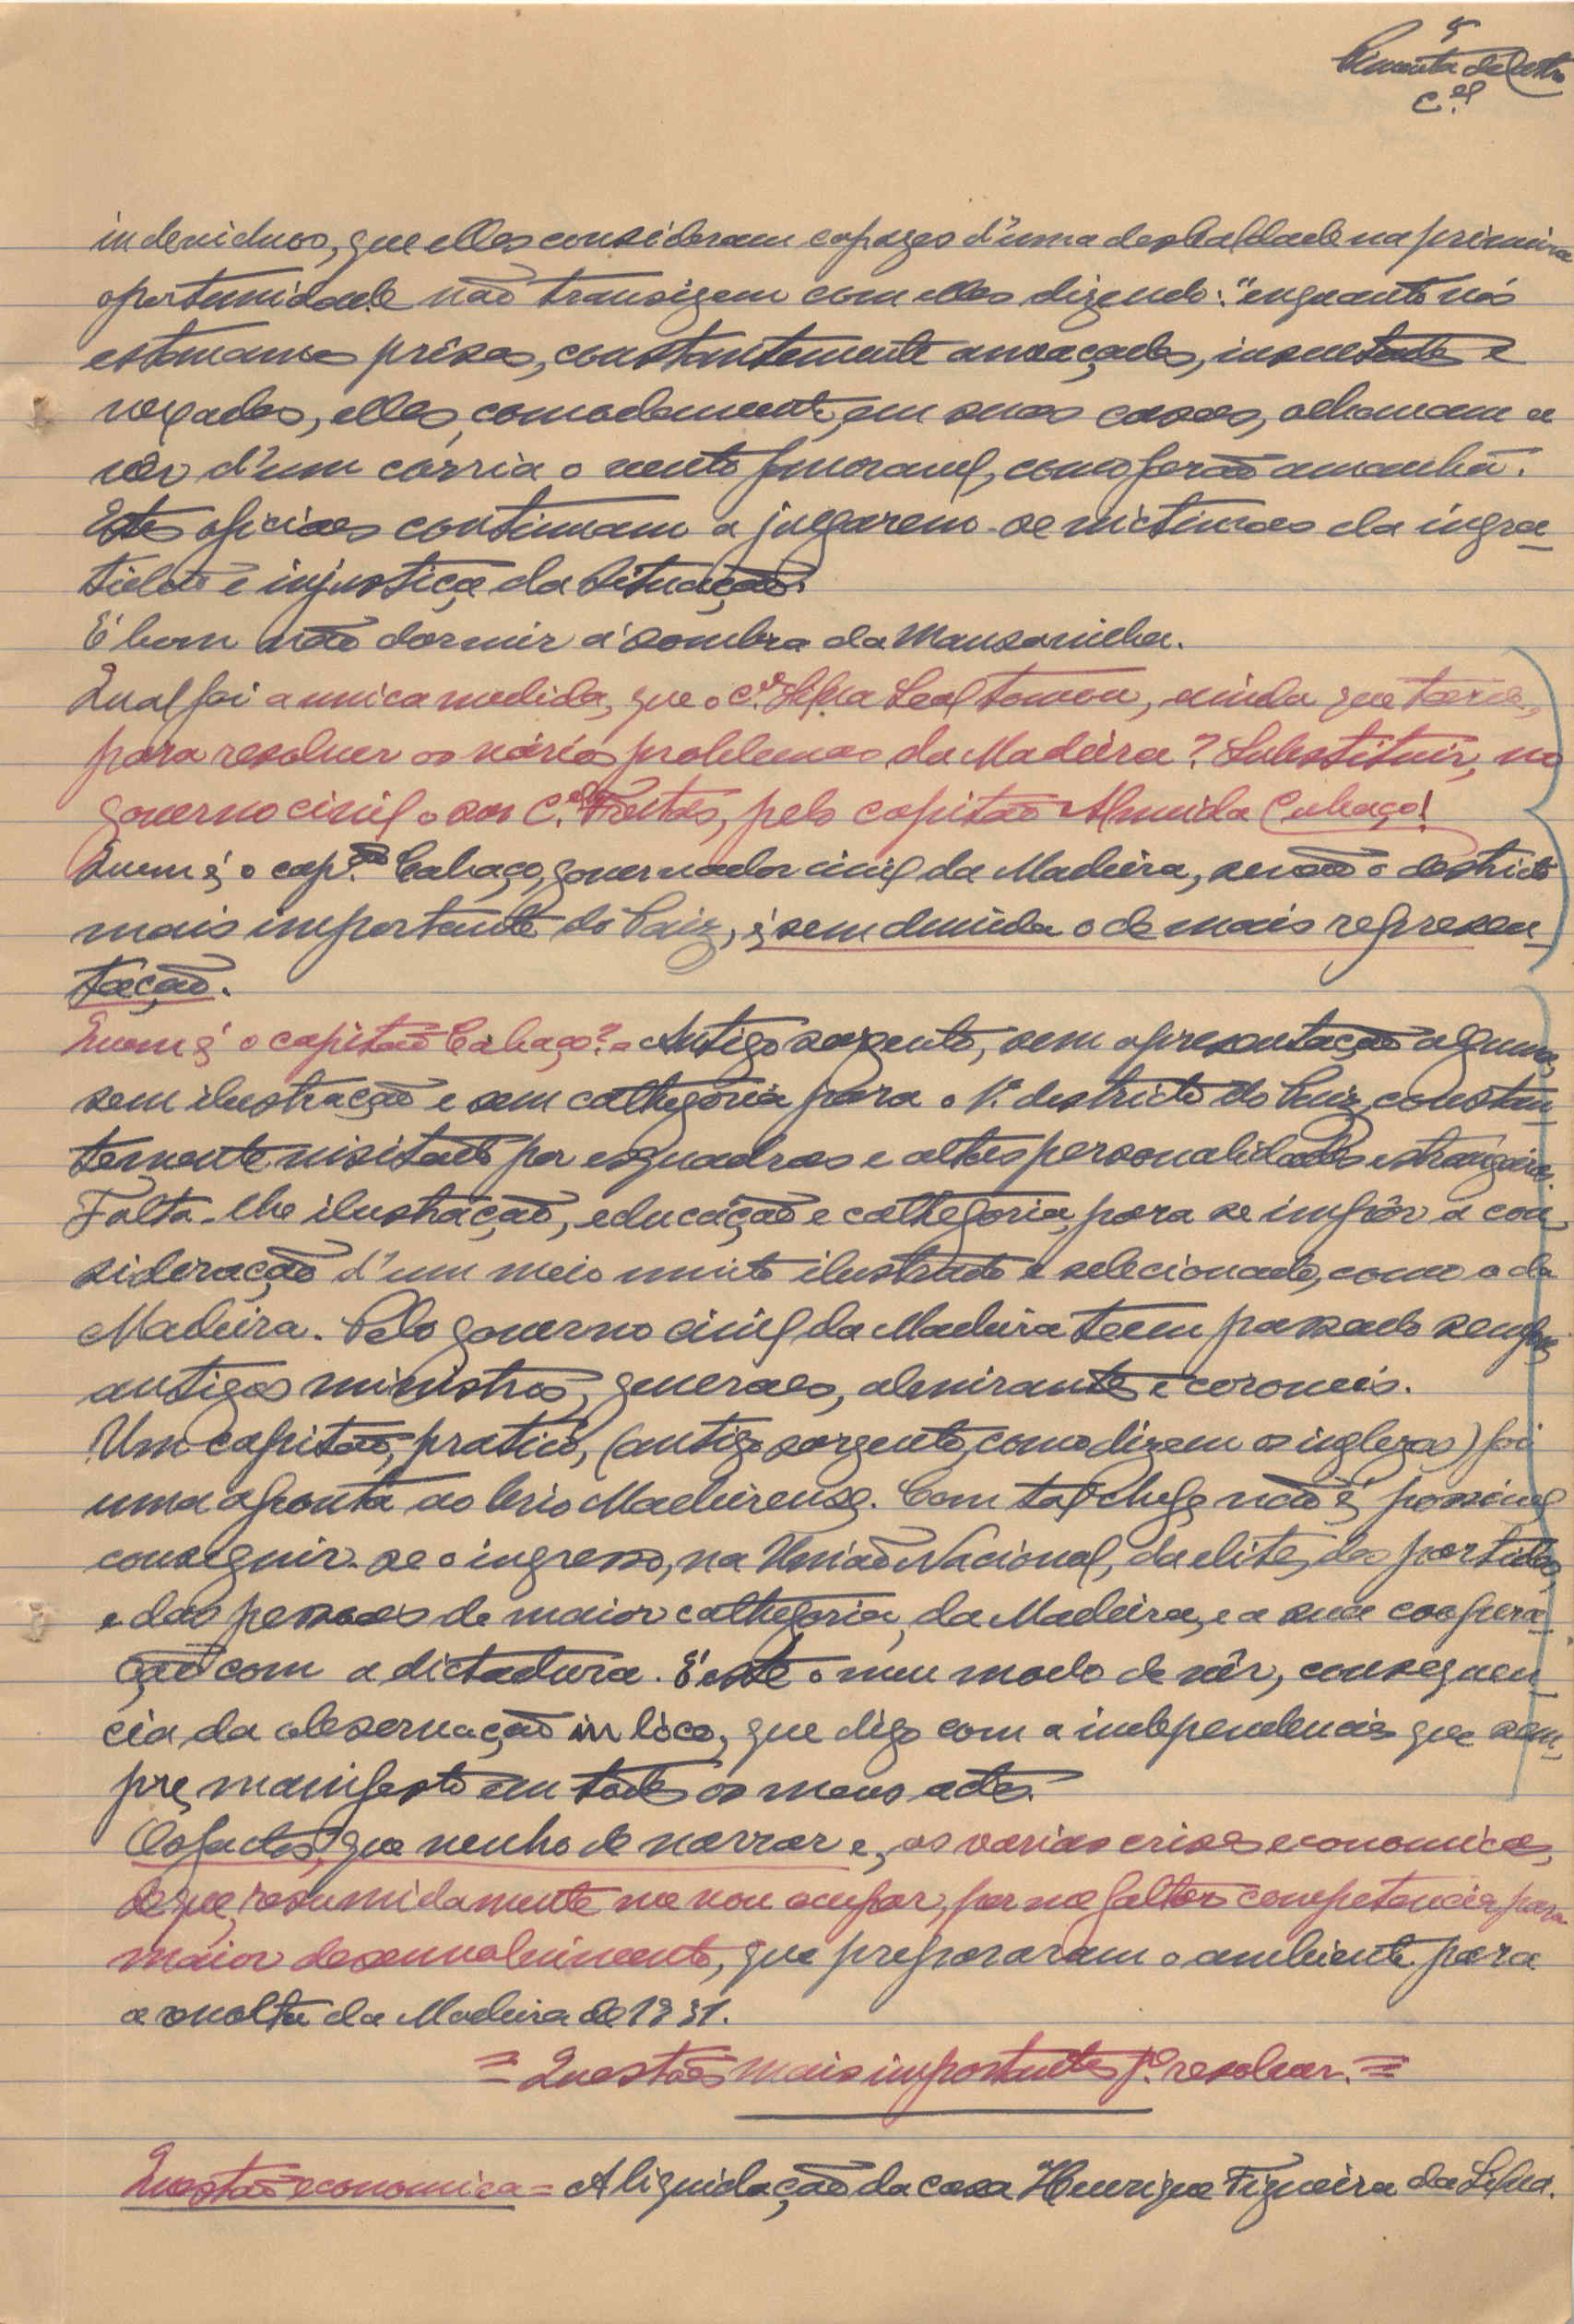 5
Pimenta de Castro
C.el
indeviduos, que elles consideram capazes d'uma deslealdade na primeira
oportunidade não transigem com elles dizendo: "enquanto nós
estavamos prêsos, constantemente ameaçados, insultados e
vexados, elles, comodamente, em suas casas, olhavam a
vêr d'um corria o vento favoravel, como farão amanhã.
Estes oficiaes continuam a julgarem-se victimas da ingra-
tidão e injustiça da Situação.
É bom não dormir á sombra da Mansanilha.
Qual foi a unica medida, que o C.el Silva Leal tomou, ainda que tarde,
para resolver os vários problemas da Madeira? Substituir, no
governo civil o sor C.el Freitas, pelo capitão Almeida Cabaço!
Quem é o cap.ão Cabaço, governador civil da Madeira, senão o destricto
mais importante do Paiz, é sem duvida o de mais represen-
tação.
Quem é o capitão Cabaço? = Antigo sargento, sem apresentação alguma,
sem ilustração e sem cathegoria para o 1.º destricto do Paiz, constan-
temente visitado por esquadras e altas personalidades estrangeiras.
Falta-lhe ilustração, educação e cathegoria, para se impôr a con-
sideração d'um meio muito ilustrado e selecionado, como o da
Madeira. Pelo governo civil da Madeira teem passado sempre
antigos ministros, generaes, almirantes e coroneis.
Um capitão, pratico, (antigo sargento, como dizem os inglezes) foi
uma afronta ao brio Madeirense. Com tal chefe não é possivel
conseguir-se o ingresso, na União Nacional, da elite, dos partidos,
e das pessoas de maior cathegoria, da Madeira, e a sua coopera-
ção com a dictadura. É este o meu modo de vêr, consequen-
cia da observação in loco, que digo com a independencia que sem-
pre manifesto em todos os meus actos.
Os factos, que venho de narrar e, as varias crises economicas,
de que, resumidamente me vou ocupar, por me faltar competencia para
maior desenvolvimento, que prepararam o ambiente para
a revolta da Madeira de 1931.
= Questões mais importantes p.ª resolver. =
Questão economica = A liquidação da casa Henrique Figueira da Silva.